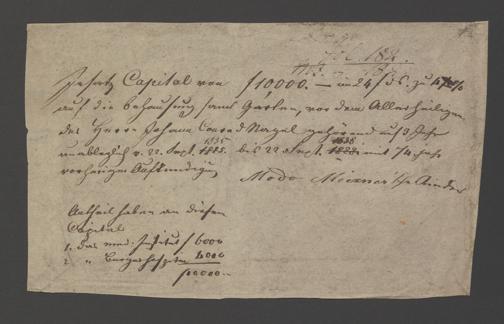 fol. 182.
Insatz Capital von f 10,000. — in 24 f Fs. zu 4 pC%
auf die Behausung samt Garten, vor dem Allerheiligen
des Herrn Johann Conrad Nagel gehörend auf 3 Jahr
unableglich v. 22. Sept. 1835. bis 22 Sept. 1838 mit 1/4 jahr
vorheriger Aufkündigung
Modo Meixner'sche Kinder
Antheil haben an diesem
Capital
1. das med. Institut f 6000
2. " Burgerhospital 4000
10000.—